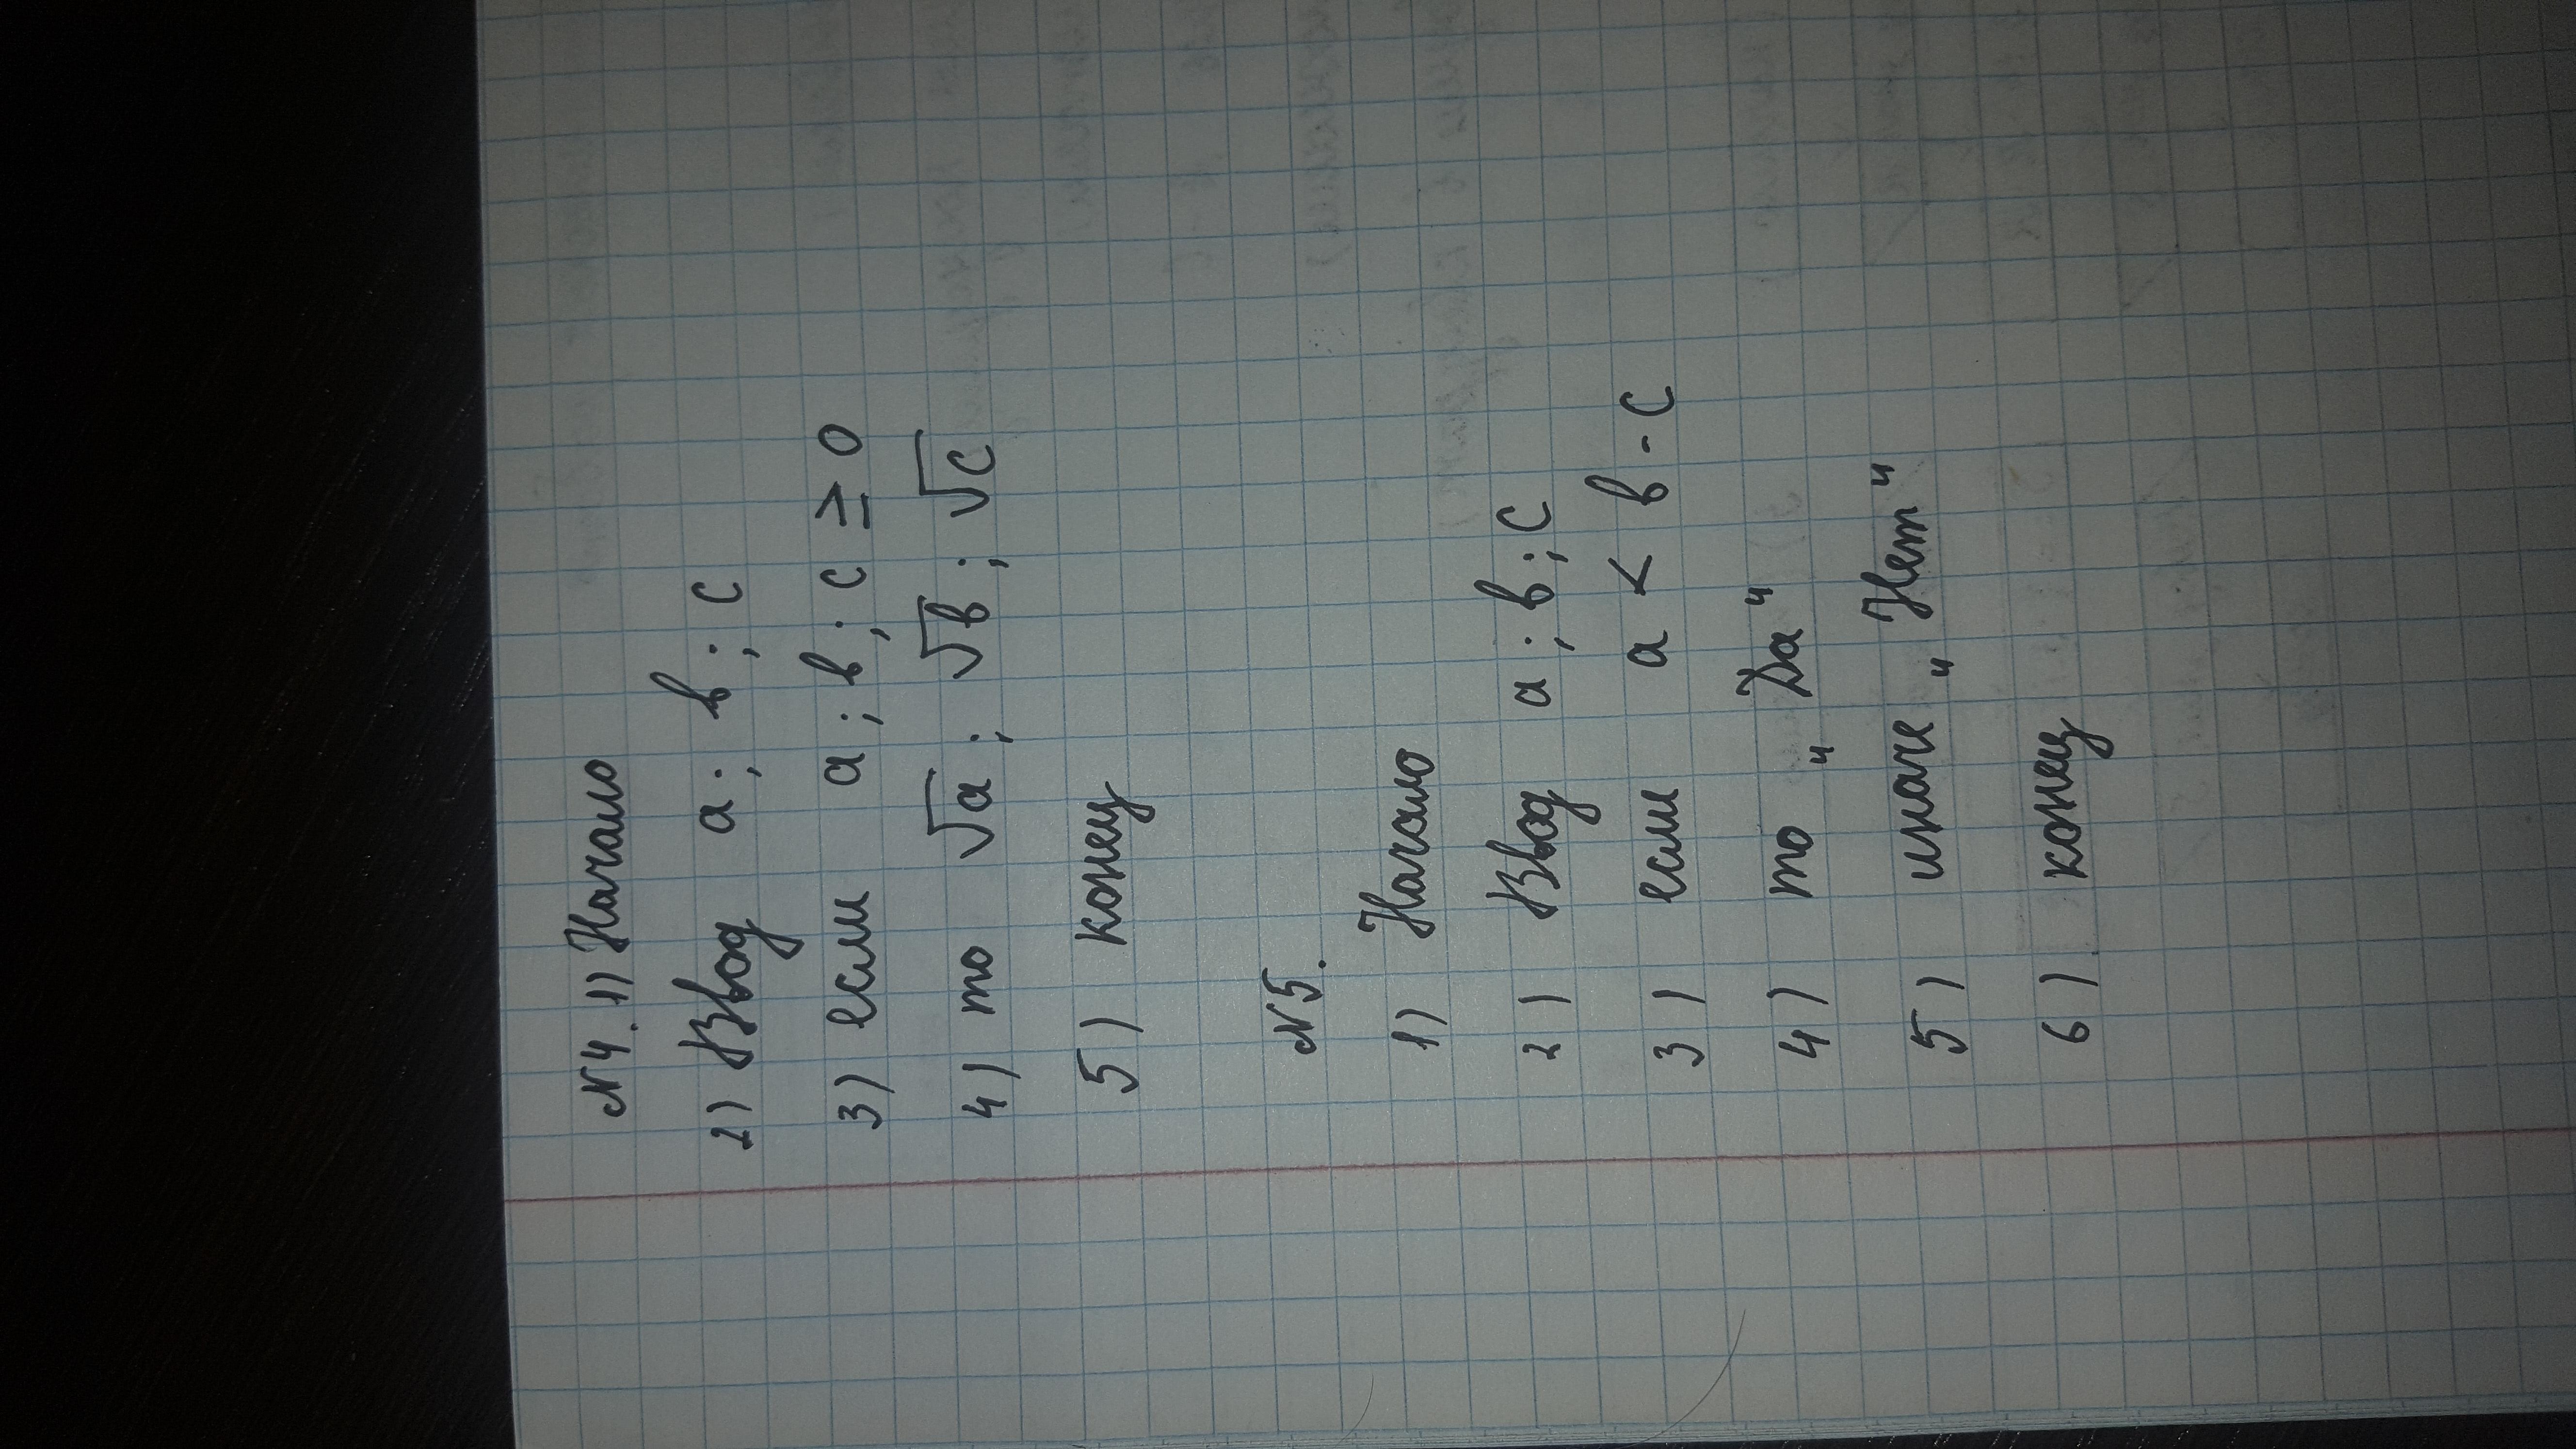 №4. 1) Начало
2) Ввод a; b; c
3) если a; b; c ≥ 0
4) то √a; √b; √c
5) конец
№5.
1) Начало
2) Ввод a; b; c
3) если a < b - c
4) то „Да“
5) иначе „Нет“
6) конец